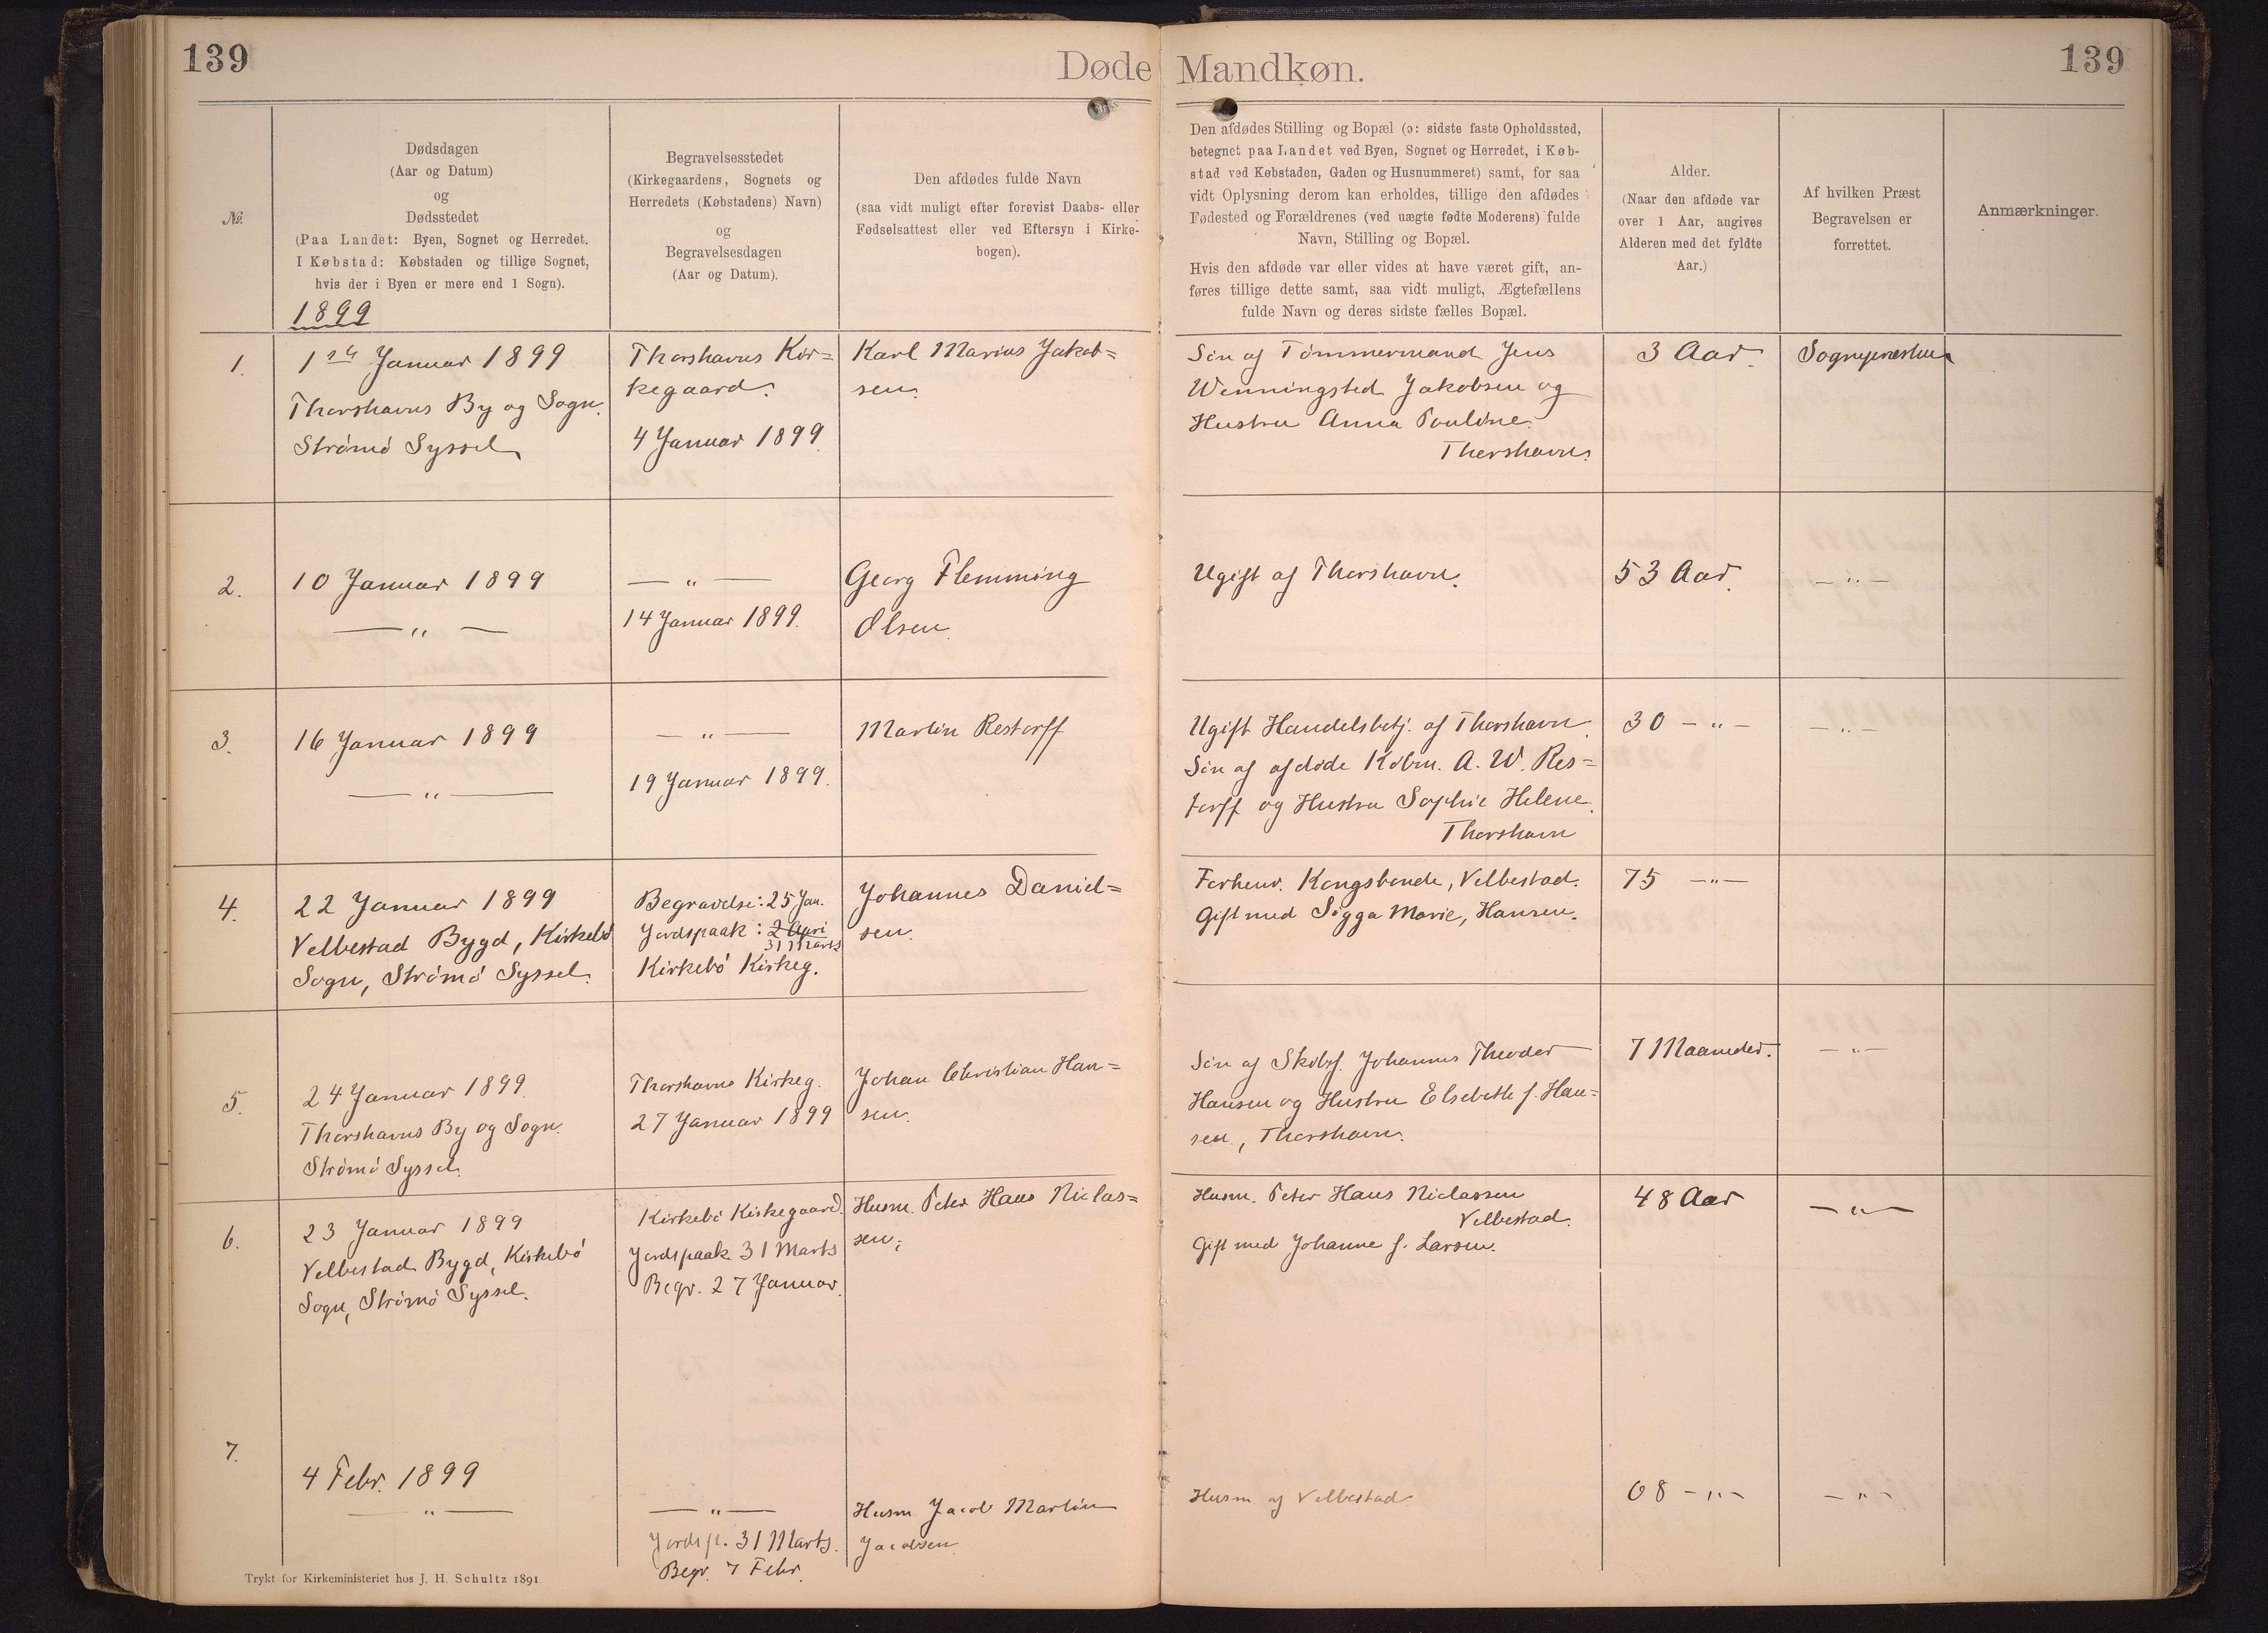 139
Døde Mandkøn.
139
№.
Dødsdagen
(Aar og Datum)
og
Dødsstedet
(Paa Landet: Byen, Sognet og Herredet.
I Købstad: Købstaden og tillige Sognet,
hvis der i Byen er mere end 1 Sogn).
1899
Begravelsesstedet
(Kirkegaardens, Sognets og
Herredets (Købstadens) Navn)
og
Begravelsesdagen
(Aar og Datum).
Den afdødes fulde Navn
(saa vidt muligt efter forevist Daabs- eller
Fødselsattest eller ved Eftersyn i Kirke-
bogen).
Den afdødes Stilling og Bopæl (ɔ: sidste faste Opholdssted,
betegnet paa Landet ved Byen, Sognet og Herredet, i Køb-
stad ved Købstaden, Gaden og Husnummeret) samt, for saa
vidt Oplysning derom kan erholdes, tillige den afdødes
Fødested og Forældrenes (ved uægte fødte Moderens) fulde
Navn, Stilling og Bopæl.
Hvis den afdøde var eller vides at have været gift, an-
føres tillige dette samt, saa vidt muligt, Ægtefællens
fulde Navn og deres sidste fælles Bopæl.
Alder.
(Naar den afdøde var
over 1 Aar, angives
Alderen med det fyldte
Aar.)
Af hvilken Præst
Begravelsen er
forrettet.
Anmærkninger.
1.
1ste Januar 1899
Thorshavns By og Sogn.
Strømø Syssel
Thorshavns Kir=
kegaard.
4 Januar 1899.
Karl Marius Jakob=
sen.
Søn af Tømmermand Jens
Wenningsted Jakobsen og
Hustru Anna Pouline.
Thorshavn.
3 Aar.
Sognepræsten
2.
10 Januar 1899
— „ —
— „ —
14 Januar 1899.
Georg Flemming
Olsen.
Ugift af Thorshavn.
53 Aar.
— „ —
3.
16 Januar 1899
— „ —
— „ —
19 Januar 1899.
Martin Restorff
Ugift Handelsbetj. af Thorshavn.
Søn af afdøde Købm. A. W. Res=
torff og Hustru Sophie Helene.
Thorshavn
30 — „ —
— „ —
4.
22 Januar 1899
Velbestad Bygd, Kirkebø
Sogn, Strømø Syssel.
Begravelse: 25 Jan.
Jordspaak: 2 Apri
31 Marts
Kirkebø Kirkeg.
Johannes Daniel=
sen.
Forhenv. Kongsbonde, Velbestad.
Gift med Sigga Marie, Hansen.
75 — „ —
5.
24 Januar 1899.
Thorshavns By og Sogn.
Strømø Syssel.
Thorshavns Kirkeg.
27 Januar 1899
Johan Christian Han=
sen.
Søn af Johannes Theodor
Hansen og Hustru Elsebeth f. Han=
sen, Thorshavn.
7 Maaneder.
— „ —
6.
23 Januar 1899
Velbestad Bygd, Kirkebø
Sogn, Strømø Syssel.
Kirkebø Kirkegaard.
Jordspaak 31 Marts
Begr. 27 Januar.
Husm. Peter Hans Niclas=
sen;
Husm. Peter Hans Niclassen
Velbestad.
Gift med Johanne f. Larsen.
48 Aar
— „ —
7.
4 Febr. 1899
— „ —
— „ —
Jordsp. 31 Marts.
Begr. 7 Febr.
Husm. Jacob Martin
Jacobsen
Husm af Velbestad
68 — „ —
— „ —
Trykt for Kirkeministeriet hos J. H. Schultz 1891.